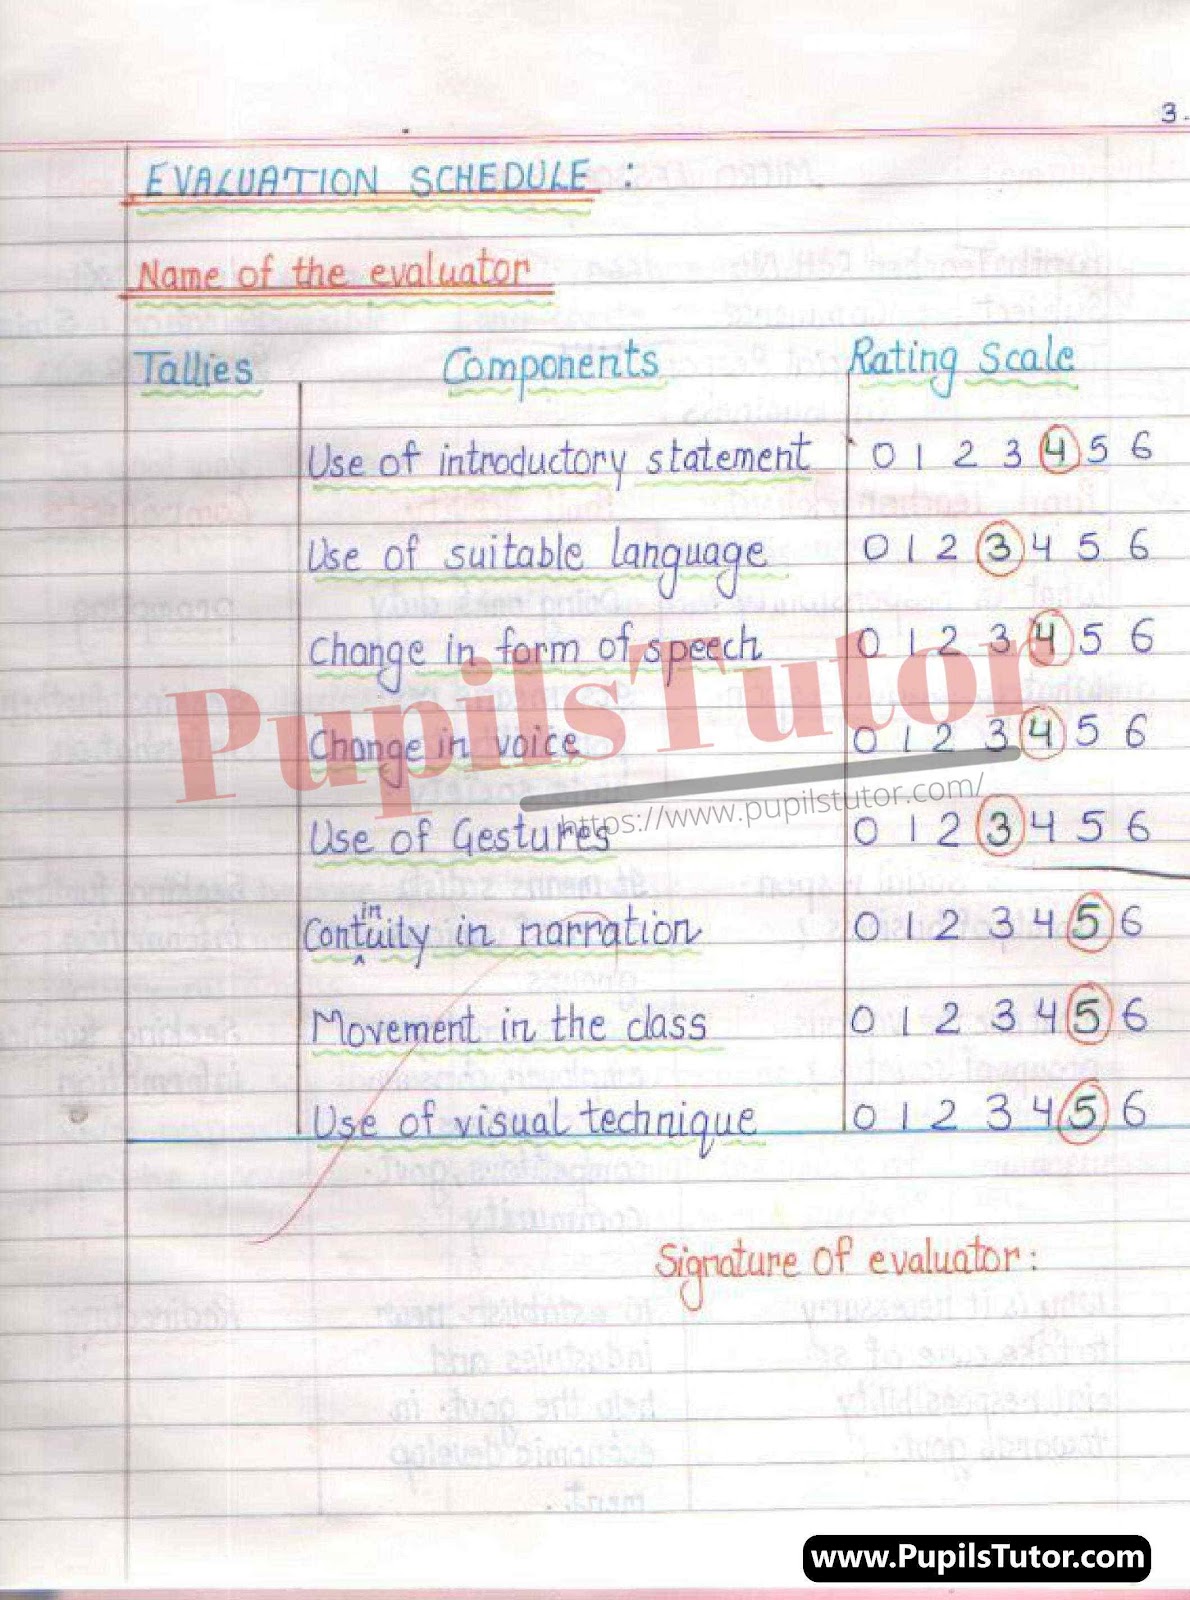 3.
EVALUATION SCHEDULE :
Name of the evaluator
Tallies Components Rating Scale
Use of introductory statement 0 1 2 3 4 5 6
Use of suitable language 0 1 2 3 4 5 6
Change in form of speech 0 1 2 3 4 5 6
PupilsTutor
Change in voice 0 1 2 3 4 5 6
https://www.pupilstutor.com/
Use of Gestures 0 1 2 3 4 5 6
Continuity in narration 0 1 2 3 4 5 6
Movement in the class 0 1 2 3 4 5 6
Use of visual technique 0 1 2 3 4 5 6
Signature of evaluator:
www.PupilsTutor.com